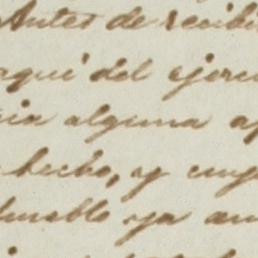 Antes de recibi
aqui del ejerc
cia alguna a
hecho, y cuy
pueblo ya an